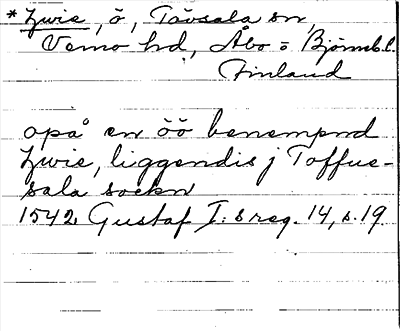 * Zwie, ö, Tövsala sn,
Vemo hd, Åbo o Björneb. l.
Finland
opå en öö benempnd
Zwie, liggendis j Toffue-
sala sockn
1542. Gustaf I:s reg. 14, s. 19